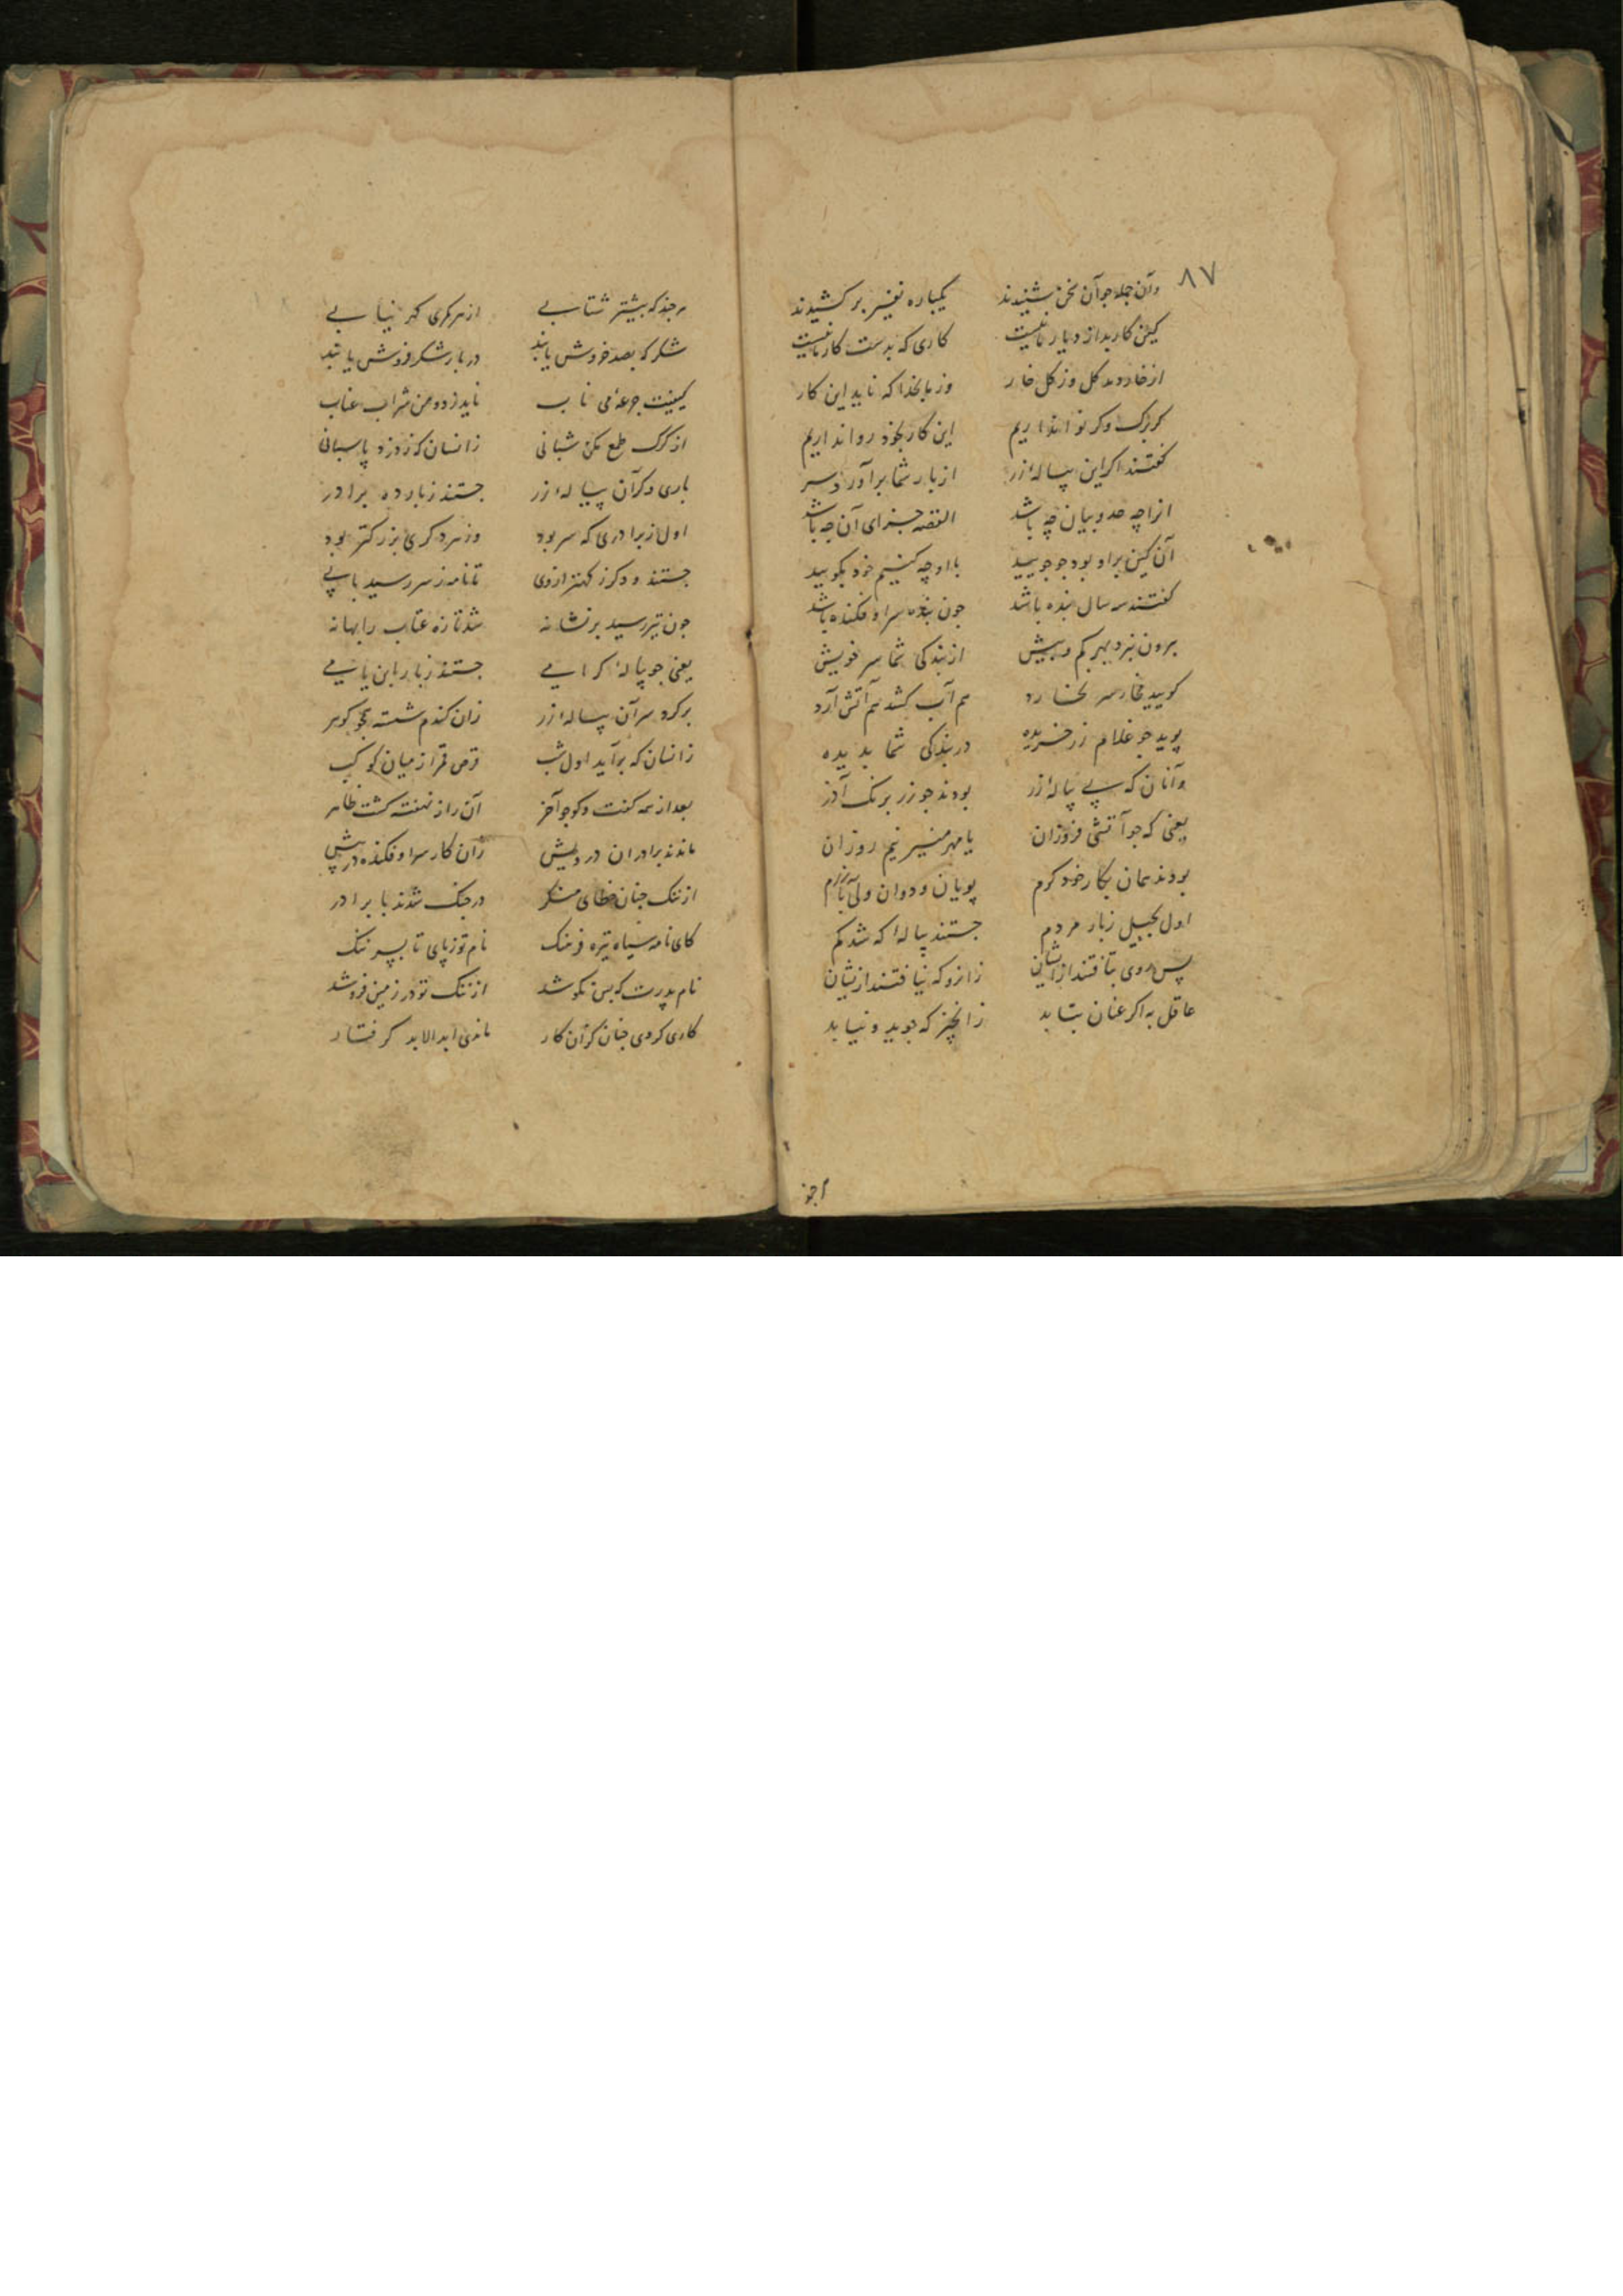 ۸۷
وآن جمله جو آن سخن شنیدند یکباره نفیر برکشیدند
کین کار بد از دیار ما نیست کاری که بدست کار ما نیست
از خار دمد کل وز کل خار وز ما بخدا که ناید این کار
کر ترک وکر نوا نداریم این کار بخود روا نداریم
کفتند اکر این پیاله زر از بار شما برآورد سر
انرا چه حد و بیان چه باشد القصه جزای آن چه باشد
آن کین براو بود جو جویید با او چه کنیم خود بکویید
کفتند سه سال بنده باشد جون بنده سر او فکنده باشد
برون نبرد بهر کم و بیش از بندکی شما سر خویش
کویید مخار سر نخارد هم آب کشد هم آتش آرد
پوید جو غلام زر خریده در بندکی شما بدیده
وآنان که پی پیاله زر بودند جو زر برنک آذر
یعنی که جو آتشی فروزان یا مهر منیر نیم روزان
بودند همان بکار خود کرم پویان و دوان ولی بآزرم
اول بجیل ز بار مردم جستند پیاله که شد کم
پس روی بتافتند از ایشان زانرو که نیافتند از نشان
عاقل به اکر عنان بتابد زانچیز که جوید و نیابد
اجز
هر جند که بیشتر شتابی از هر مکری که نیابی
شکر که بصد خروش یابند در بار شکر فروش یابند
کیفیت جرعه می ناب ناید ز دو من شراب عناب
از کرک طمع مکن شبانی زانسان که ز دزد پاسبانی
باری دکر آن پیاله زر جستند ز بار ده برادر
اول ز برادری که سر بود وز هر دکری بزرکتر بود
جستند و دکر ز کهتر از وی تا نامه ز سر رسید با پی
جون تیر رسید بر نشانه شد تازه عتاب را بهانه
یعنی جو پیاله کرامی جستند ز بار ابن یامی
برکرد سر آن پیاله زر زان کندم شسته همجو کوهر
زانسان که برآید اول شب قرص قمر از میان کوکب
بعد از همه کفت وکو جو آخر آن راز نهفته کشت ظاهر
ماندند برادران درویش زان کار سر او فکنده در پیش
از ننک جنان خطای منکر در جنک شدند با برادر
کای نامه سیاه تیره فرهنک نام تو ز پای تا بسر ننک
نام پدرت که بس نکو شد از ننک تو در زمین فرو شد
کاری کردی جنان کزان کار ماندی ابد الابد کرفتار